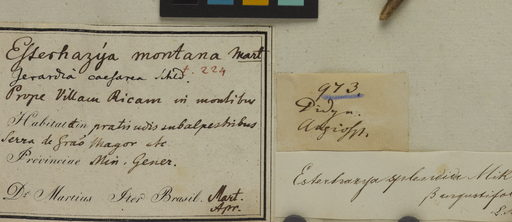 Esterhazya montana Mart
Gerardia caesarea Mss. f. 224
Prope Villam Ricam in montibus
Habitat in pratis udis subalpestribus
Serra de Grao Magor etc
Provinciae Min. Gener.
Dr Martius Iter Brasil. Mart. Apr.
973.
Didyn.
Angiosp.
Esterhazya splendida Mik
β angustifo